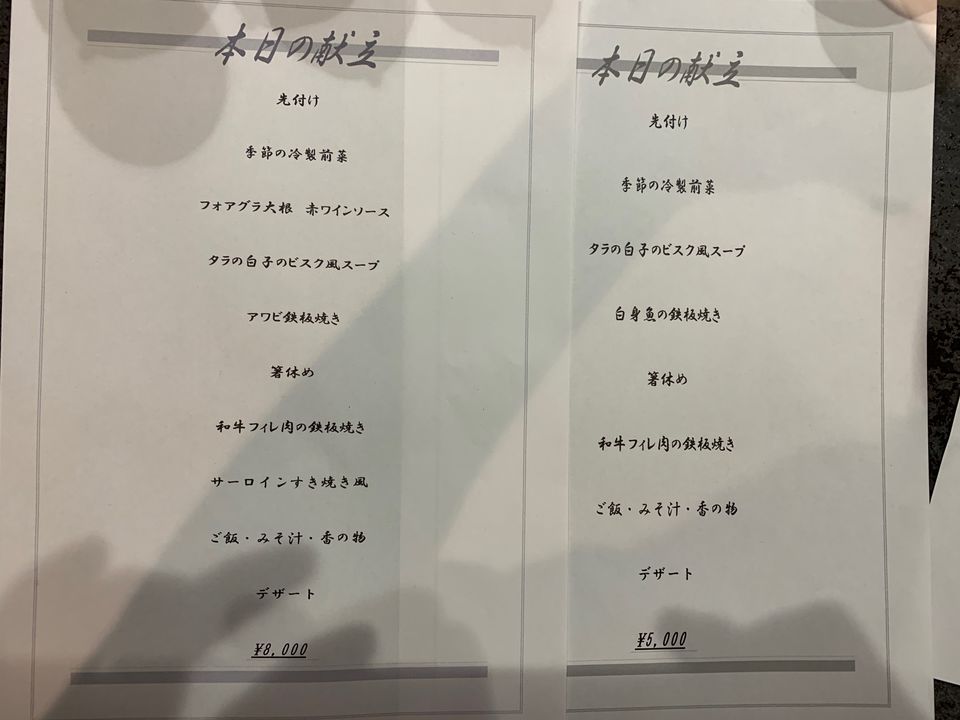 本日の献立
先付け
季節の冷製前菜
フォアグラ大根 赤ワインソース
タラの白子のビスク風スープ
アワビ鉄板焼き
箸休め
和牛フィレ肉の鉄板焼き
サーロインすき焼き風
ご飯・みそ汁・香の物
デザート
¥8,000
本日の献立
先付け
季節の冷製前菜
タラの白子のビスク風スープ
白身魚の鉄板焼き
箸休め
和牛フィレ肉の鉄板焼き
ご飯・みそ汁・香の物
デザート
¥5,000